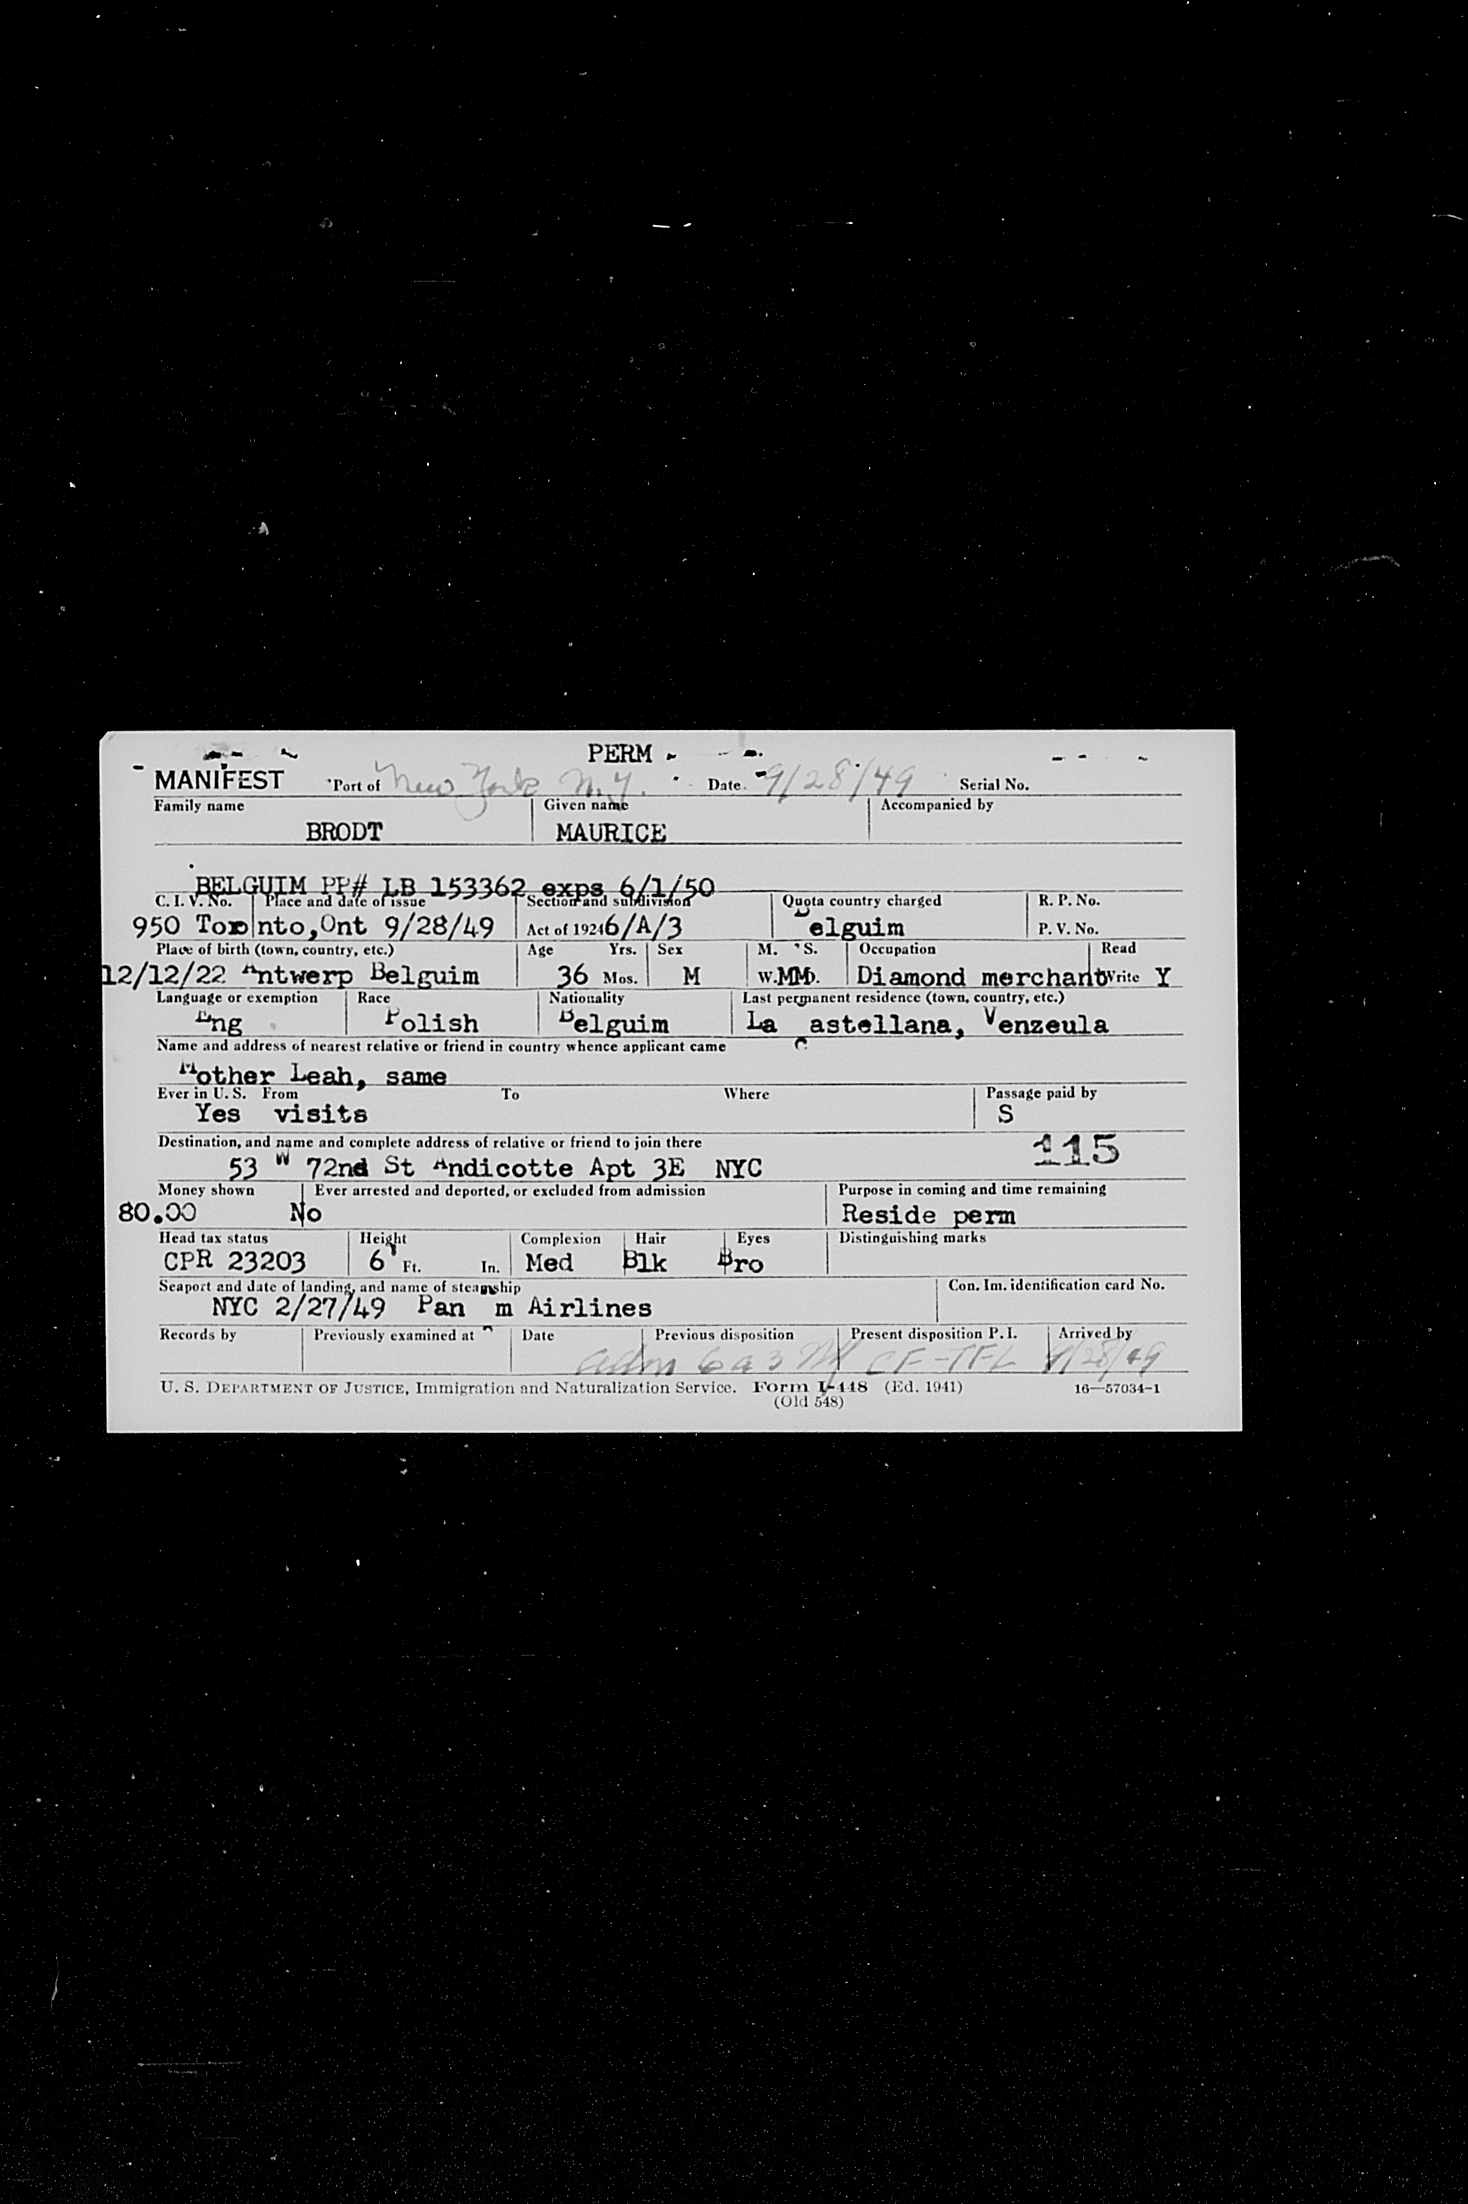 PERM
MANIFEST Port of New York N.Y. Date 9/28/49 Serial No.
Family name Given name Accompanied by
BRODT MAURICE
BELGUIM PP# LB 153362 exps 6/1/50
C. I. V. No. Place and date of issue Section and subdivision Quota country charged R. P. No.
950 Toronto,Ont 9/28/49 Act of 1924 6/A/3 Belguim P. V. No.
Place of birth (town, country, etc.) Age Yrs. Sex M. S. Occupation Read
12/12/22 Antwerp Belguim 36 Mos. M W. MM D. Diamond merchant Write Y
Language or exemption Race Nationality Last permanent residence (town, country, etc.)
Eng Polish Belguim La Castellana, Venzeula
Name and address of nearest relative or friend in country whence applicant came
Mother Leah, same
Ever in U. S. From To Where Passage paid by
Yes visits S
Destination, and name and complete address of relative or friend to join there
53 W 72nd St Andicotte Apt 3E NYC 115
Money shown Ever arrested and deported, or excluded from admission Purpose in coming and time remaining
80.00 No Reside perm
Head tax status Height Complexion Hair Eyes Distinguishing marks
CPR 23203 6' Ft. In. Med Blk Bro
Seaport and date of landing, and name of steamship Con. Im. identification card No.
NYC 2/27/49 Pan Am Airlines
Records by Previously examined at Date Previous disposition Present disposition P. I. Arrived by
adm 6a3 CF-TFL 9/28/49
U. S. DEPARTMENT OF JUSTICE, Immigration and Naturalization Service. Form I-448 (Ed. 1941) 16—57034-1
(Old 548)